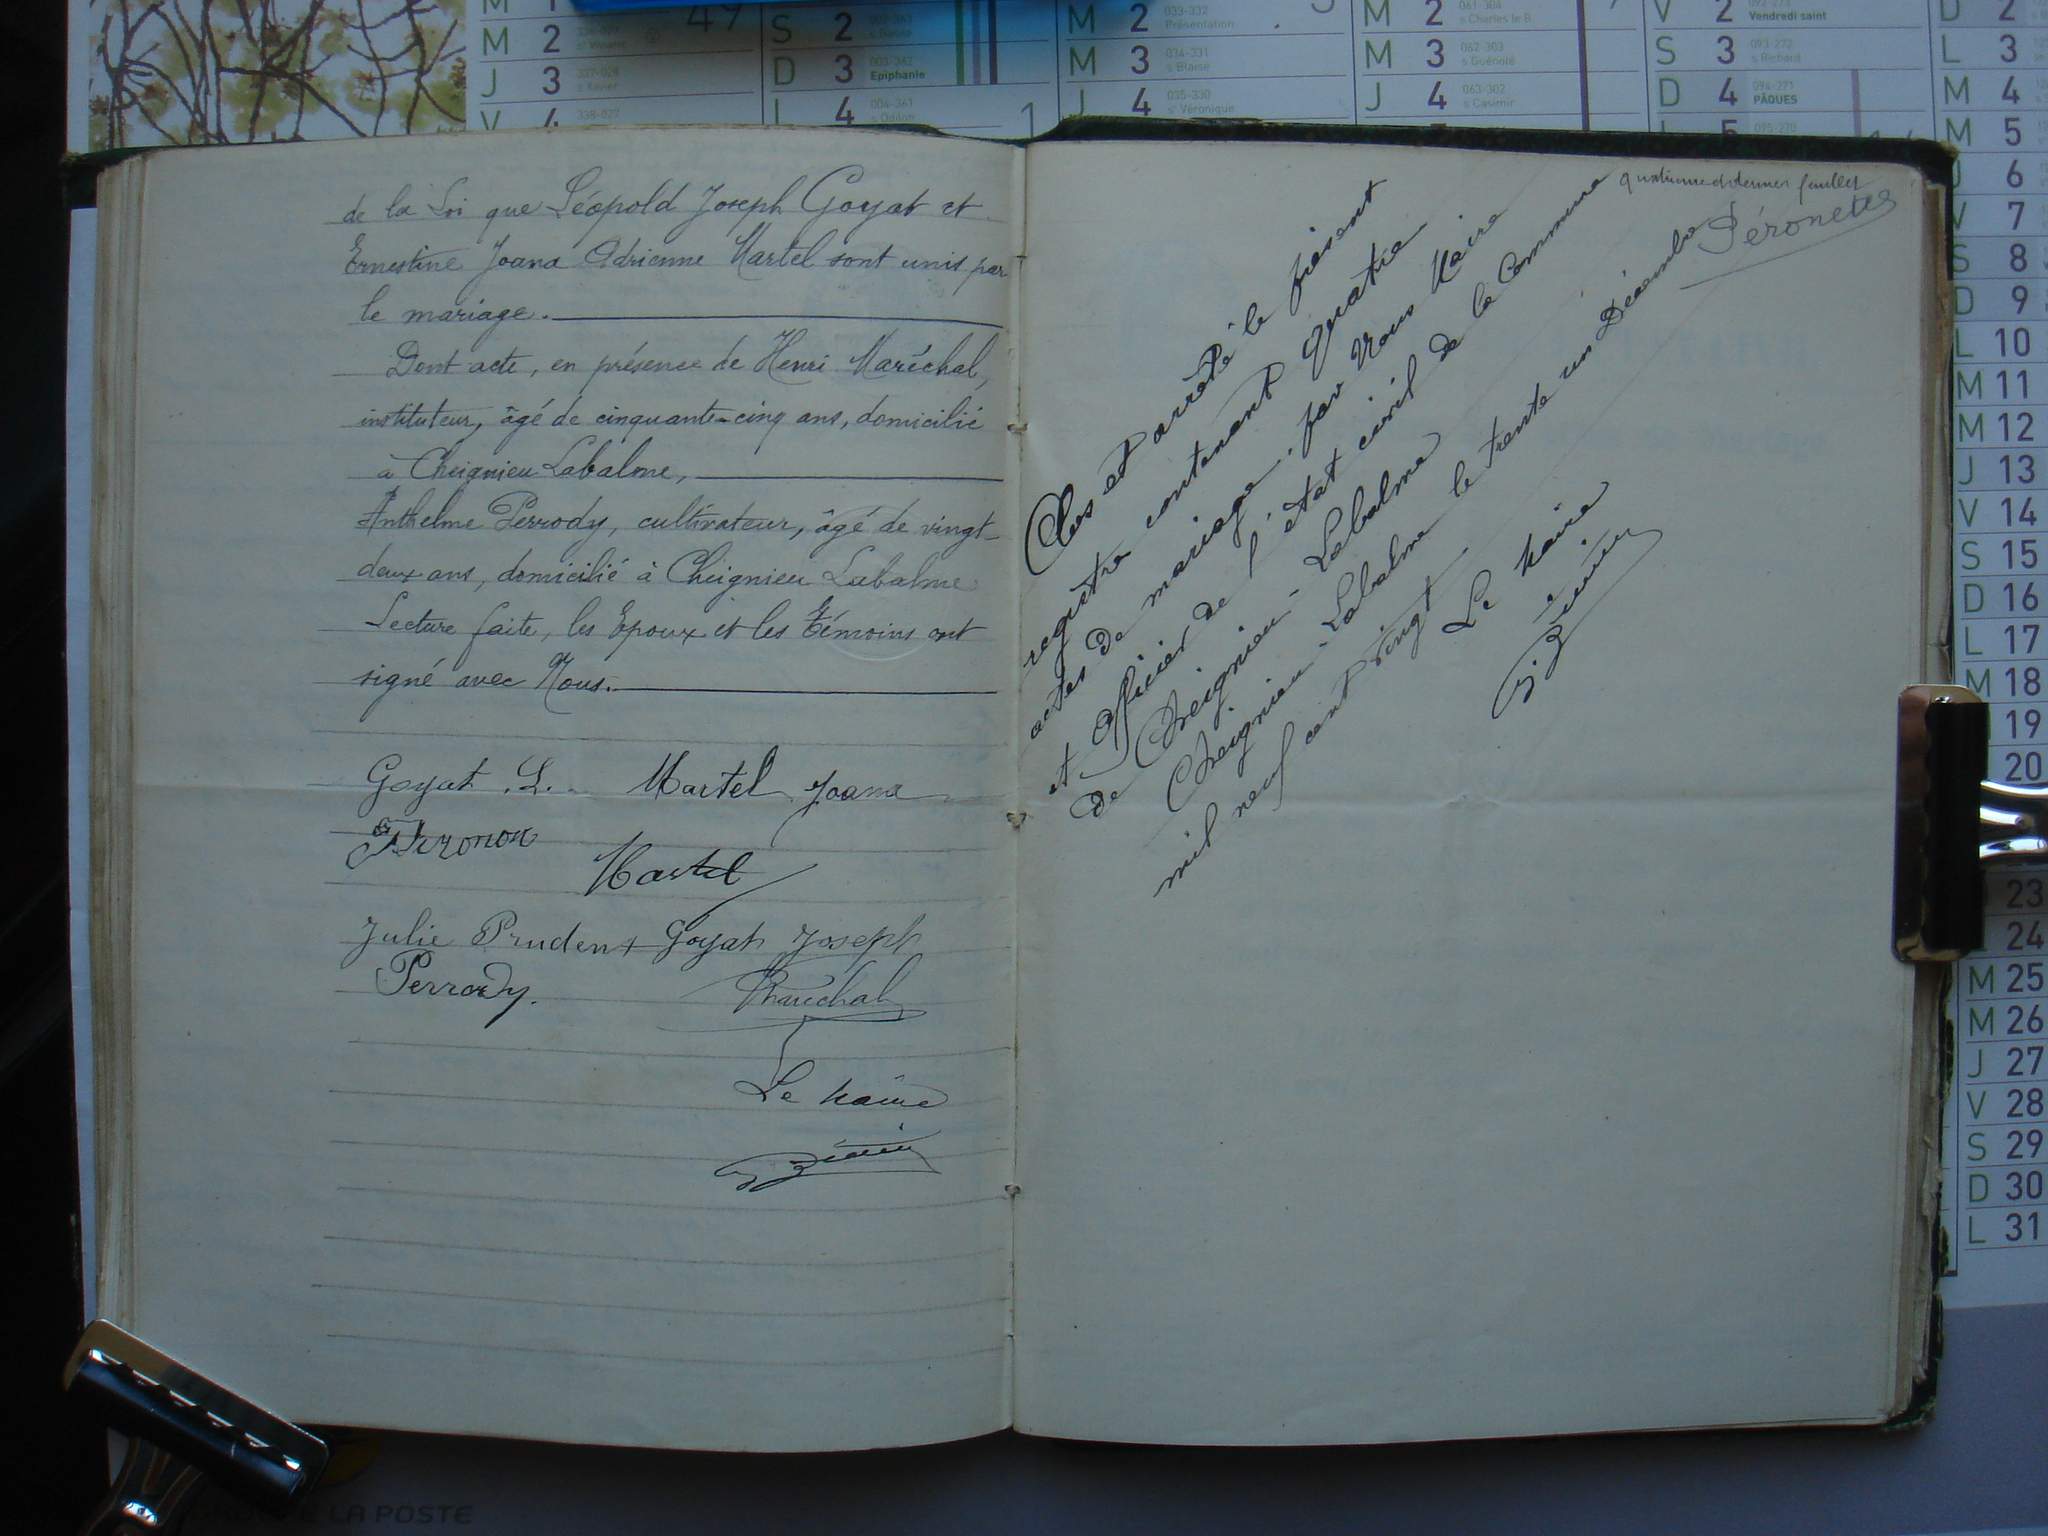 de la Loi que Léopold Joseph Goyat et
Ernestine Joana Adrienne Martel sont unis par
le mariage.
Dont acte, en présence de Henri Maréchal,
instituteur, âgé de cinquante-cinq ans, domicilié
à Cheignieu Labalme,
Anthelme Perrody, cultivateur, âgé de vingt-
deux ans, domicilié à Cheignieu Labalme
Lecture faite, les Epoux et les Témoins ont
signé avec Nous.
Goyat .L. Martel Joana
Martel
Julie Prudent Goyat Joseph
Perrody. Maréchal
Le Maire
quatrième et dernier feuillet
Clos et arrêté le présent
registre contenant quatre
actes de mariage, par Nous Maire
et Officier de l'état civil de la Commune
de Cheignieu-Labalme
Cheignieu-Labalme le trente un Décembre
mil neuf cent vingt
Le Maire
M 2
J 3
V 4
S 2
D 3 003-362 Epiphanie
L 4 004-361 s Odilon
M 2 033-332 Présentation
M 3 034-331 s Blaise
J 4 035-330 se Véronique
M 2 061-304 s Charles le B.
M 3 062-303 s Guénolé
J 4 063-302 s Casimir
V 2 092-273 Vendredi saint
S 3 093-272 s Richard
D 4 094-271 PÂQUES
D 2
L 3
M 4
M 5
J 6
V 7
S 8
D 9
L 10
M 11
M 12
J 13
V 14
S 15
D 16
L 17
M 18
19
20
23
24
M 25
M 26
J 27
V 28
S 29
D 30
L 31
LA POSTE